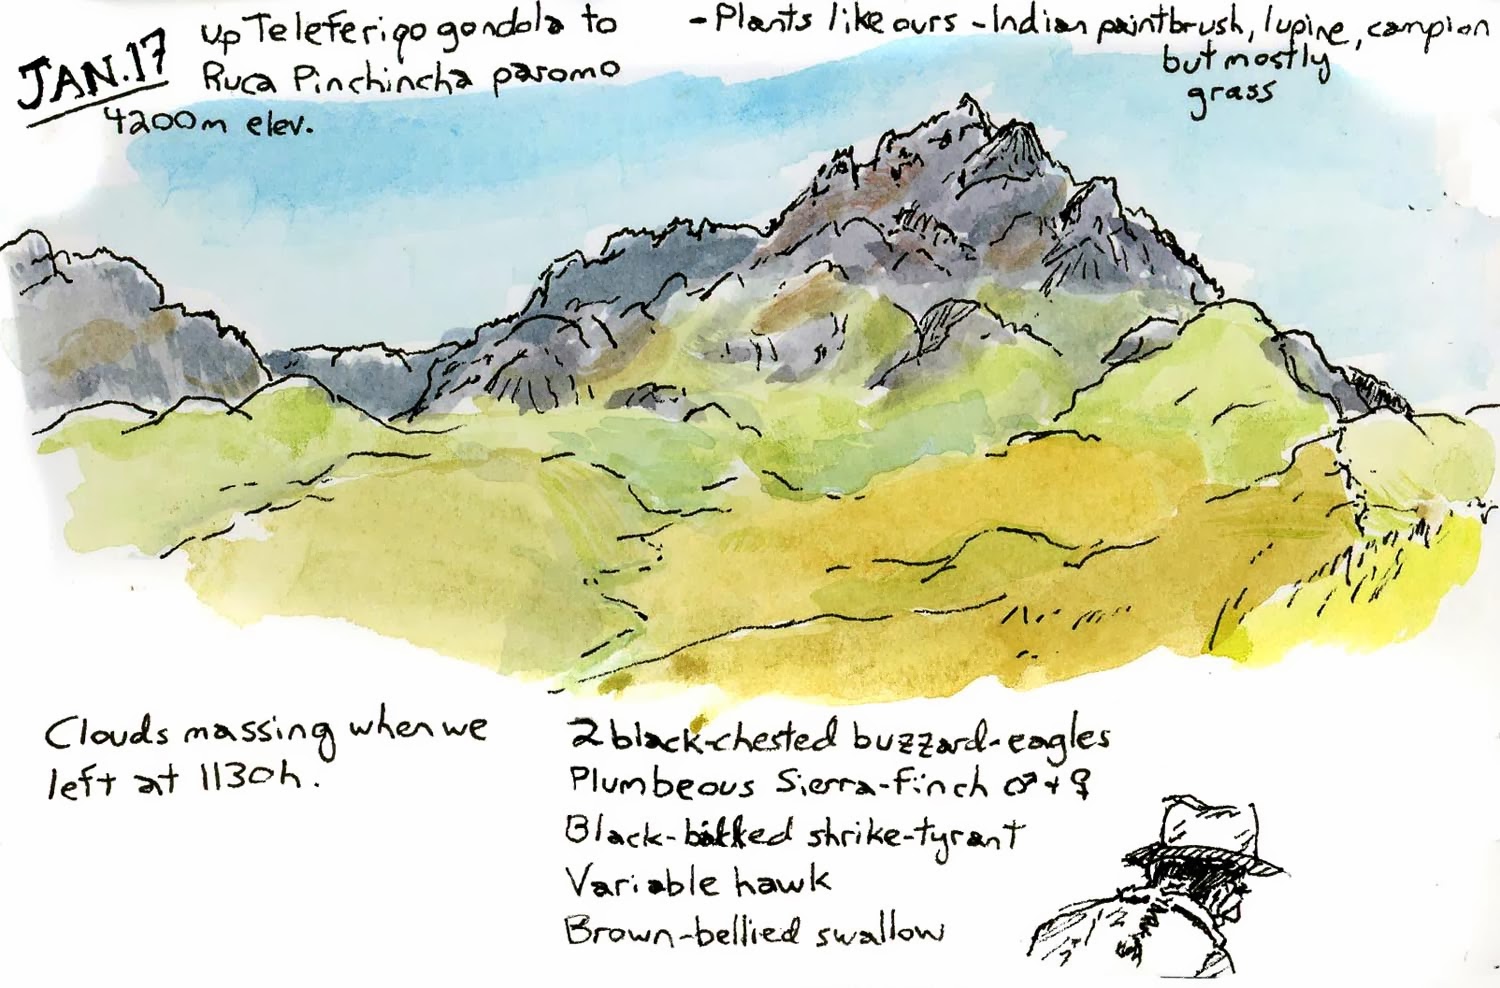 JAN.17
up Teleferiqo gondola to
Ruca Pinchincha paromo
4200m elev.
-Plants like ours -Indian paintbrush, lupine, campion
but mostly
grass
Clouds massing when we
left at 1130h.
2 black-chested buzzard-eagles
Plumbeous Sierra-finch ♂+♀
Black-billed shrike-tyrant
Variable hawk
Brown-bellied swallow